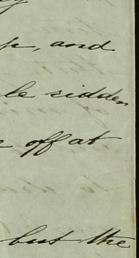 and
le ridden
off at
but the